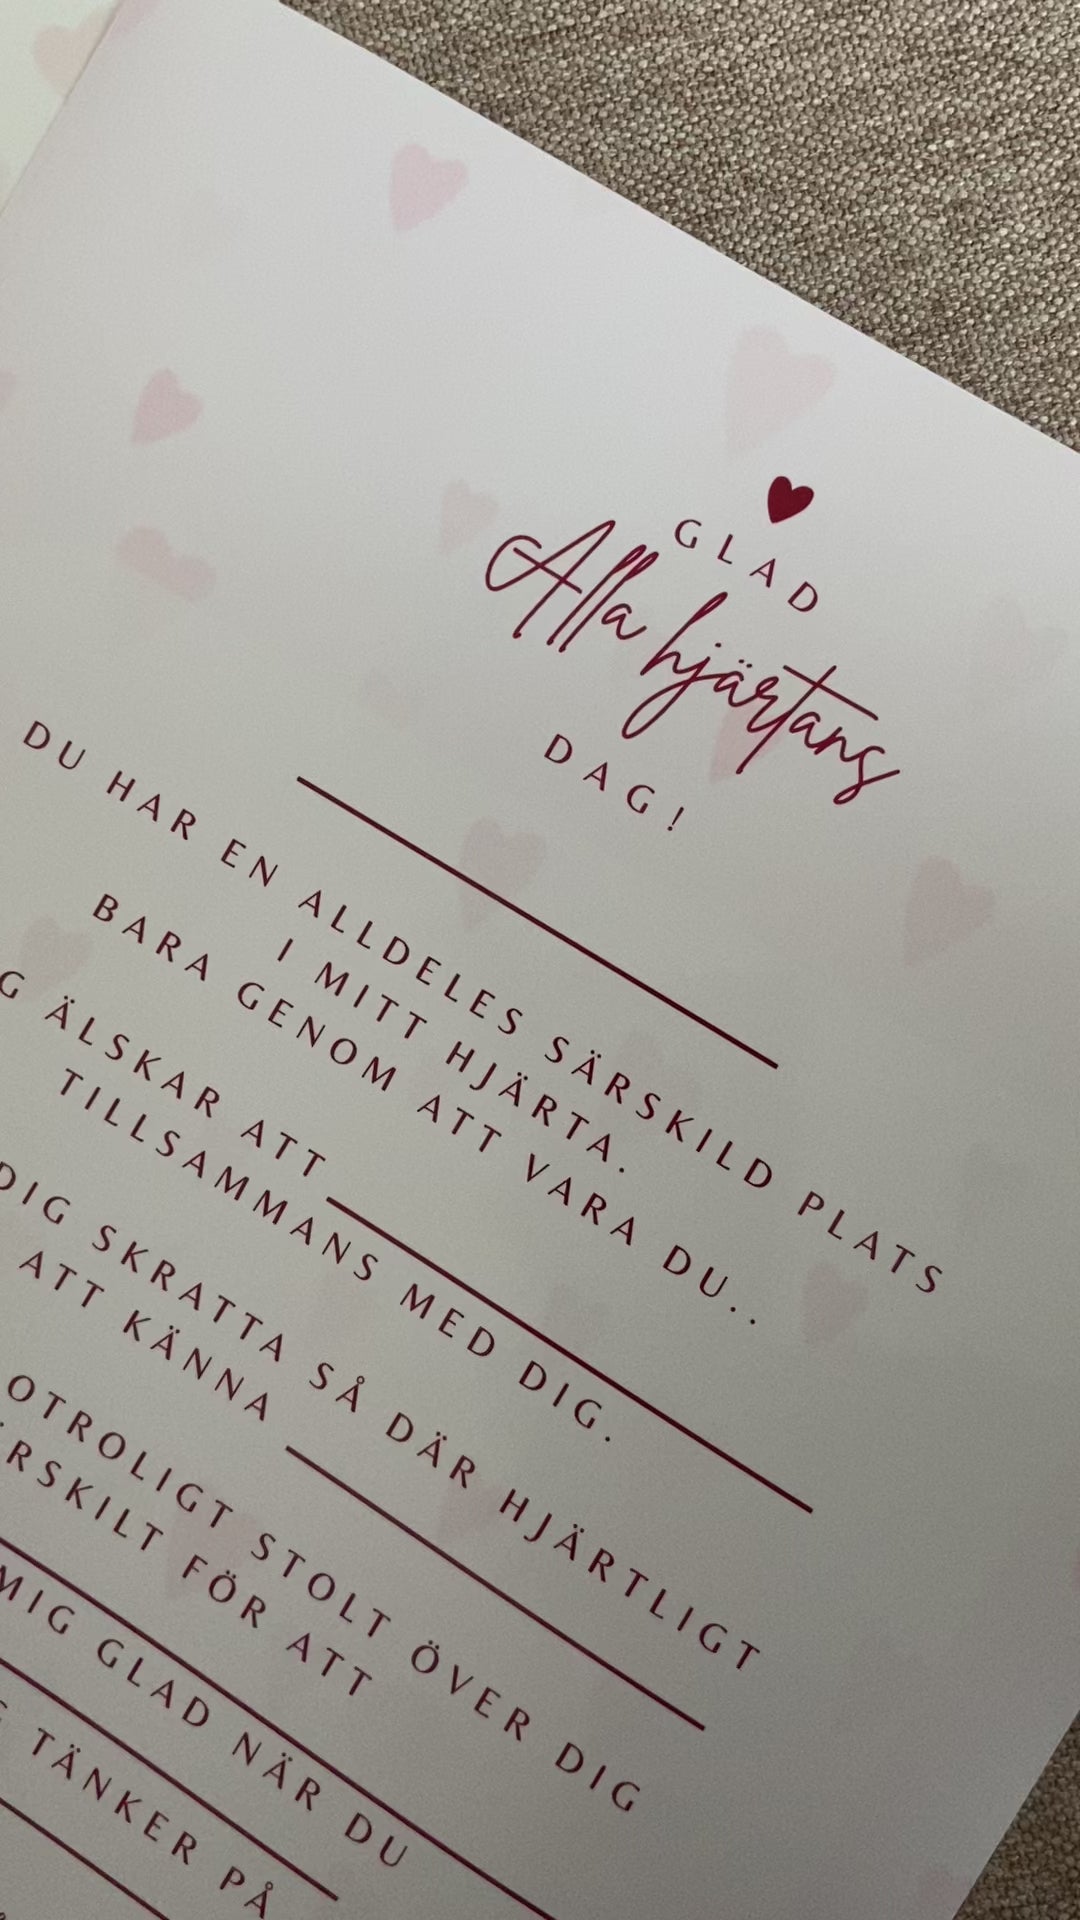 GLAD
Alla hjärtans
DAG!
DU HAR EN ALLDELES SÄRSKILD PLATS
I MITT HJÄRTA.
BARA GENOM ATT VARA DU..
ÄLSKAR ATT
TILLSAMMANS MED DIG.
DIG SKRATTA SÅ DÄR HJÄRTLIGT
ATT KÄNNA
OTROLIGT STOLT ÖVER DIG
FÖR ATT
MIG GLAD NÄR DU
TÄNKER PÅ